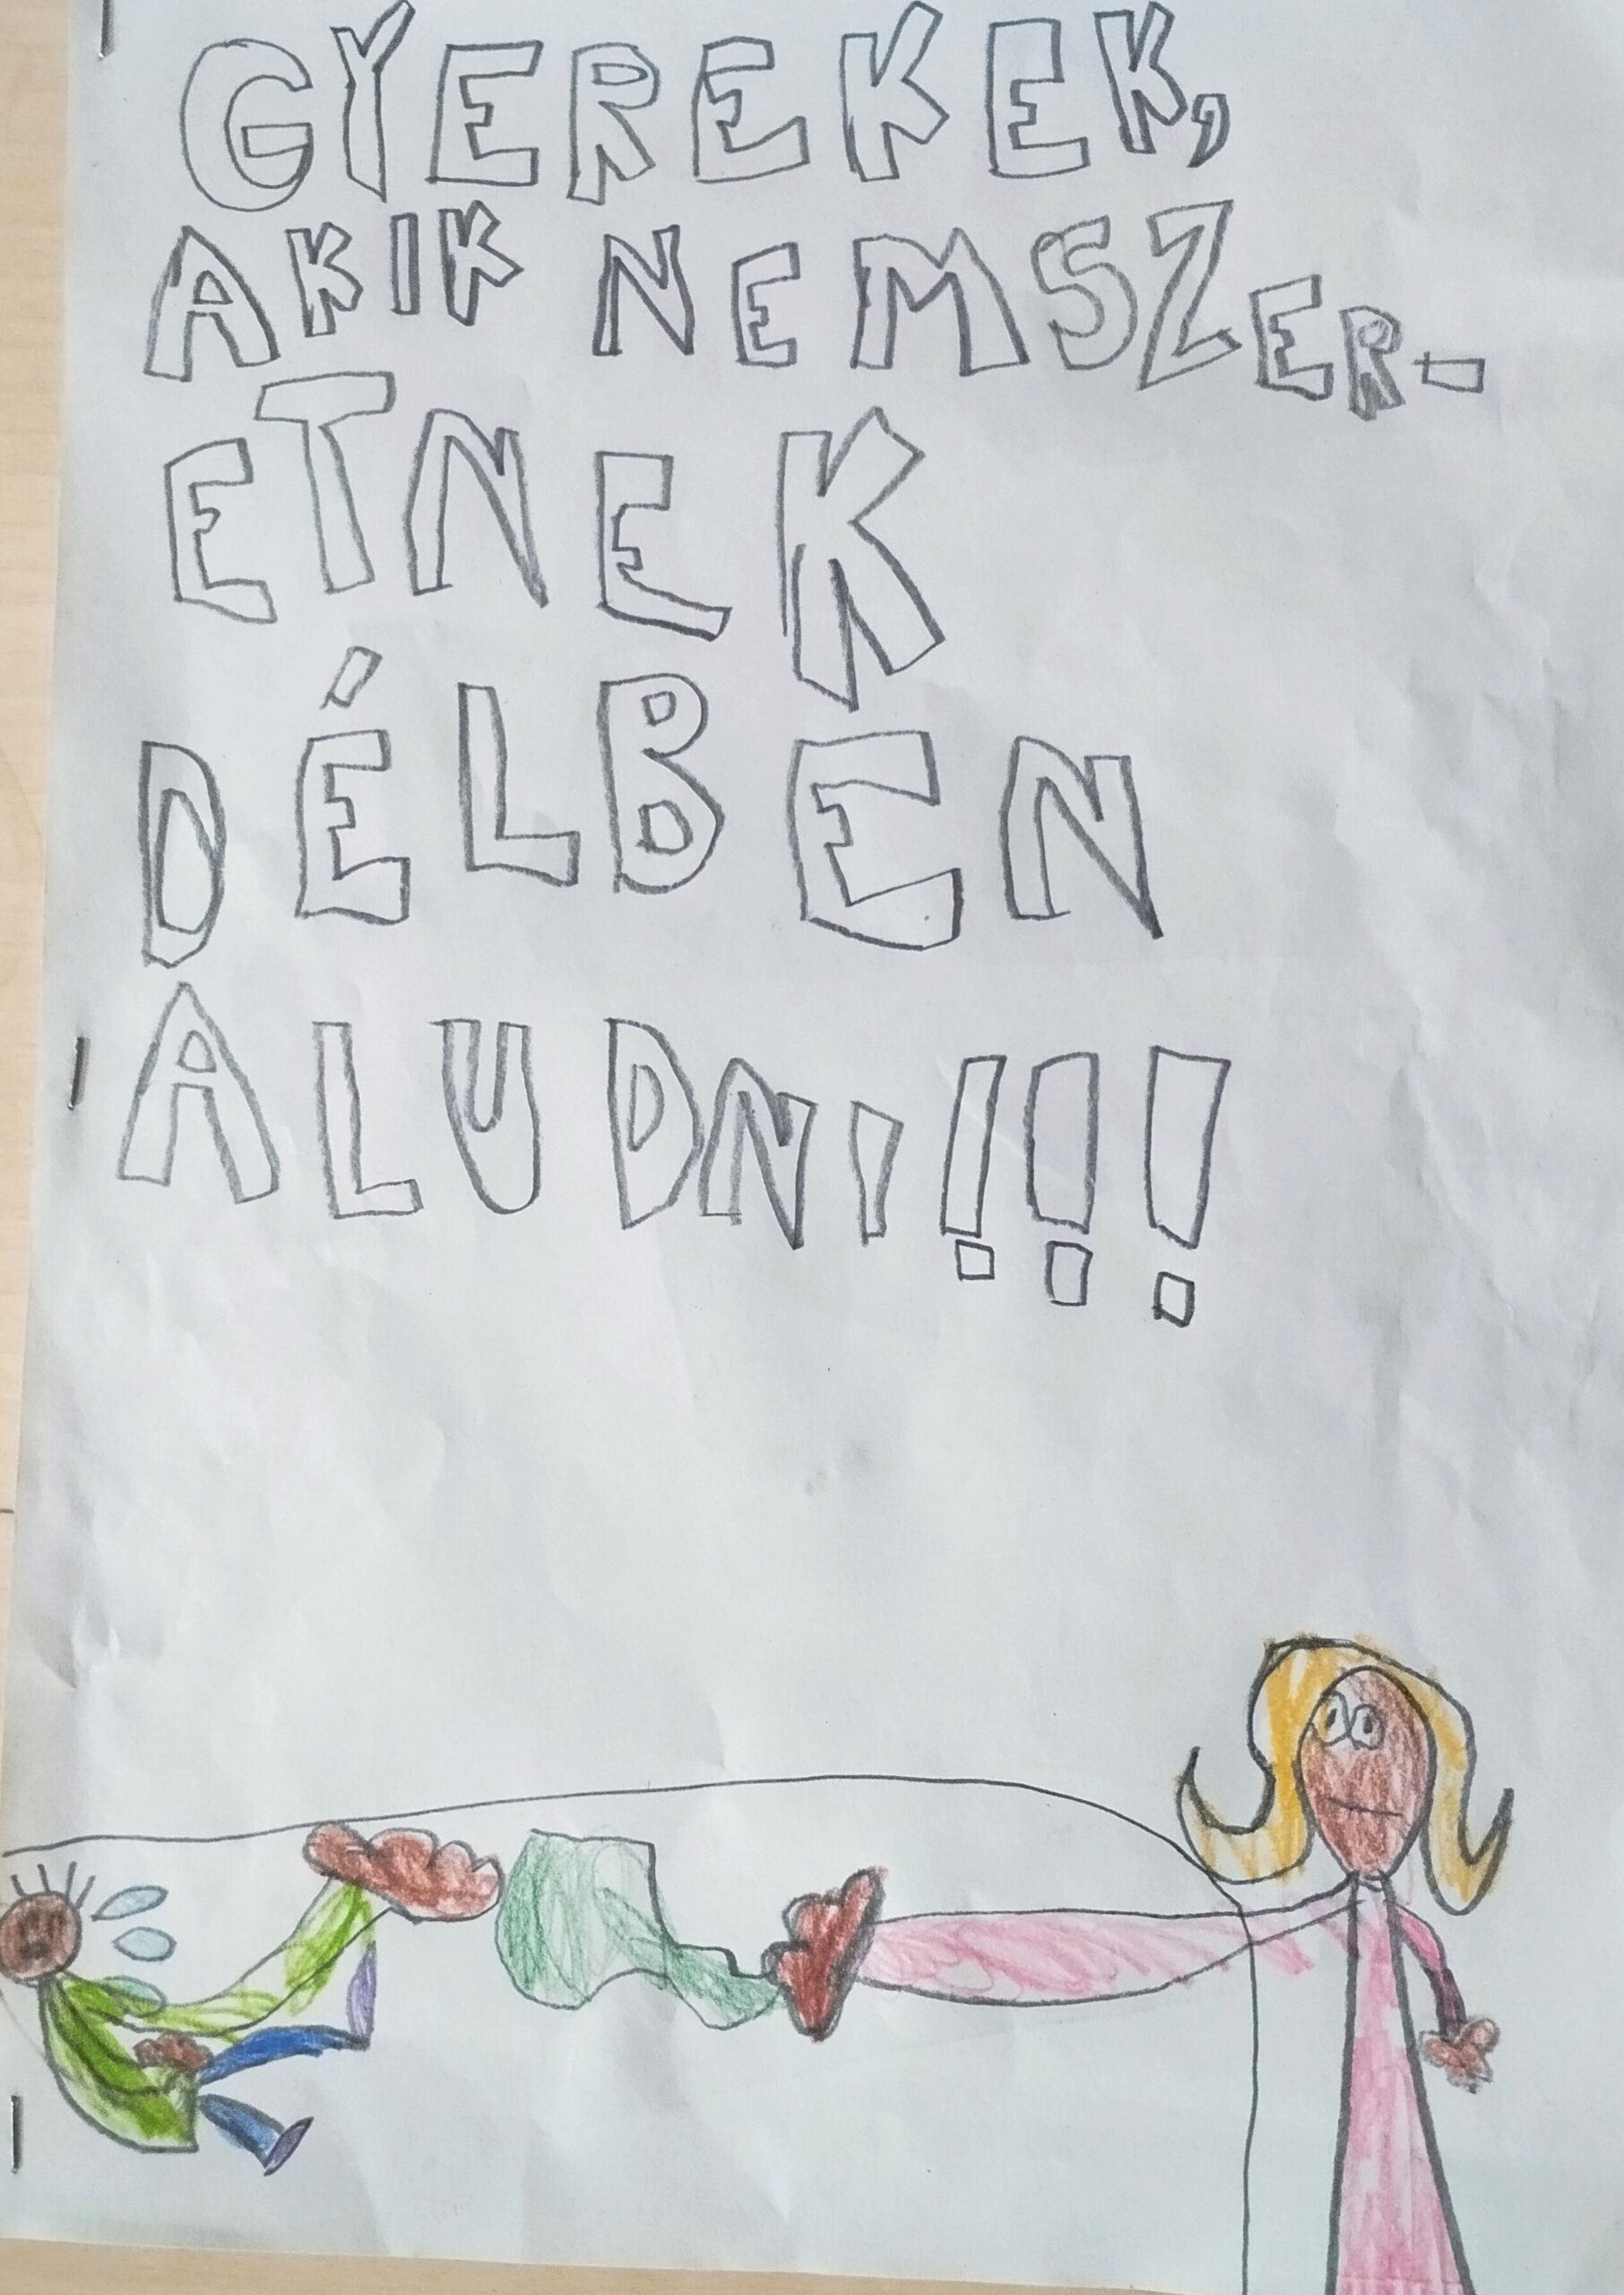 GYEREKEK,
AKIK NEM SZER-
ETNEK
DÉLBEN
ALUDNI!!!